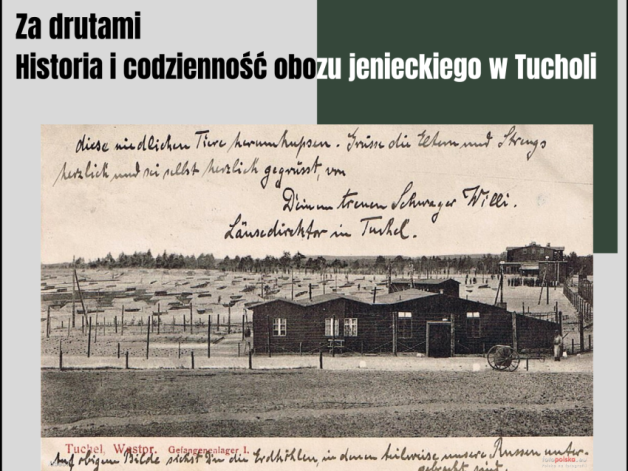 Za drutami
Historia i codzienność obozu jenieckiego w Tucholi
diese niedlichen Tiere herumhupsen. Grüsse die Eltern und Strengs
herzlich und sei selbst herzlich gegrüsst, von
Deinem treuen Schwager Willi.
Läusedirektor in Tuchel.
Tuchel, Westpr. Gefangenenlager I.
Auf obigem Bilde siehst Du die Erdhöhlen, in denen teilweise unsere Russen unter-
gebracht sind.
polska